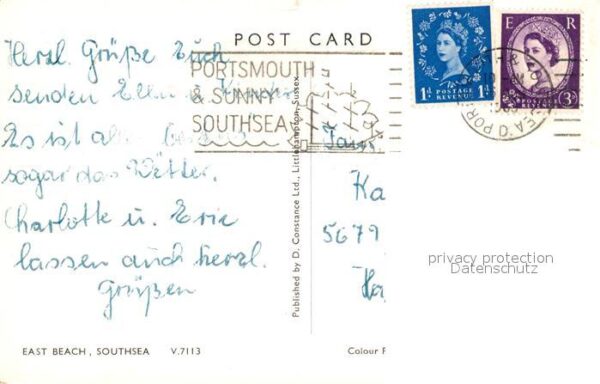 POST CARD
Herzl. Grüße Euch
senden
Es ist
sogar das Wetter.
Charlotte u. Eric
lassen auch herzl.
Grüßen
PORTSMOUTH
& SUNNY
SOUTHSEA
1D POSTAGE REVENUE 1D
E R
POSTAGE REVENUE 3D
Published by D. Constance Ltd., Littlehampton, Sussex.
Ka
5679
privacy protection
Datenschutz
EAST BEACH, SOUTHSEA V.7113
Colour